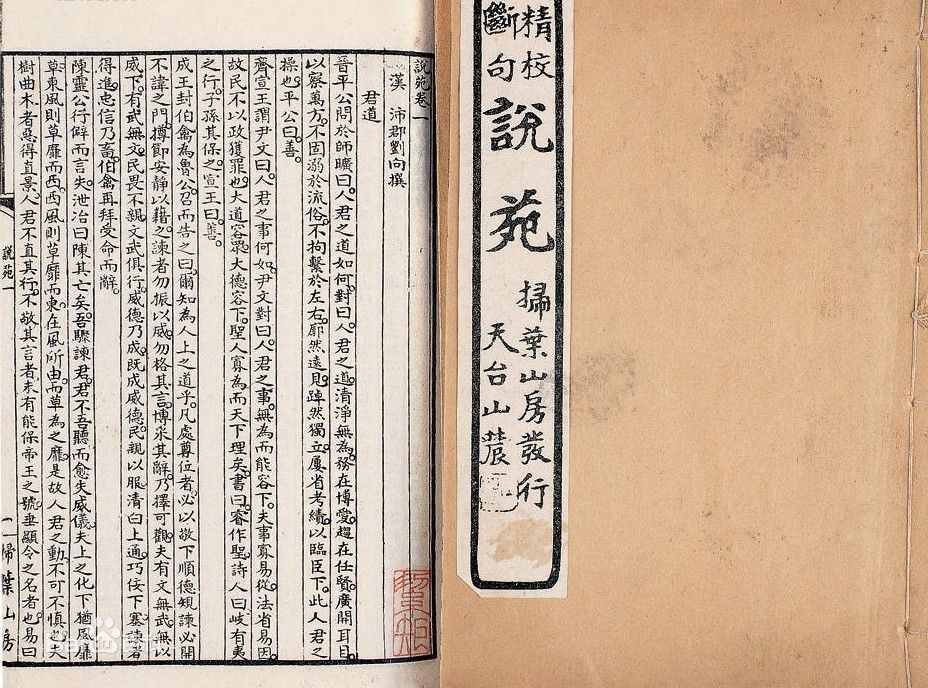 精校
斷句
說苑
掃葉山房發行
天台山農
說苑卷一
漢 沛郡劉向撰
君道
晉平公問於師曠曰。人君之道如何。對曰。人君之道。清淨無為。務在博愛。趨在任賢。廣開耳目。
以察萬方。不固溺於流俗。不拘繫於左右。廓然遠見。踔然獨立。屢省考績。以臨臣下。此人君之
操也。平公曰。善。
齊宣王謂尹文曰。人君之事何如。尹文對曰。人君之事。無為而能容下。夫事寡易從。法省易因。
故民不以政獲罪也。大道容眾。大德容下。聖人寡為而天下理矣。書曰。睿作聖。詩人曰。岐有夷
之行。子孫其保之。宣王曰。善。
成王封伯禽為魯公。召而告之曰。爾知為人上之道乎。凡處尊位者。必以敬下順德規諫。必開
不諱之門。撙節安靜以藉之。諫者勿振以威。勿格其言。博采其辭。乃擇可觀。夫有文無武。無以
威下。有武無文。民畏不親。文武俱行。威德乃成。既成威德。民親以服。清白上通。巧佞下塞。諫者
得進。忠信乃畜。伯禽再拜受命而辭。
陳靈公行僻而言失。泄冶曰。陳其亡矣。吾驟諫君。君不吾聽。而愈失威儀。夫上之化下。猶風靡
草。東風則草靡而西。西風則草靡而東。在風所由。而草為之靡。是故人君之動。不可不慎也。夫
樹曲木者。惡得直景。人君不直其行。不敬其言者。未有能保帝王之號。垂顯令之名者也。易曰
說苑一
一
掃葉山房